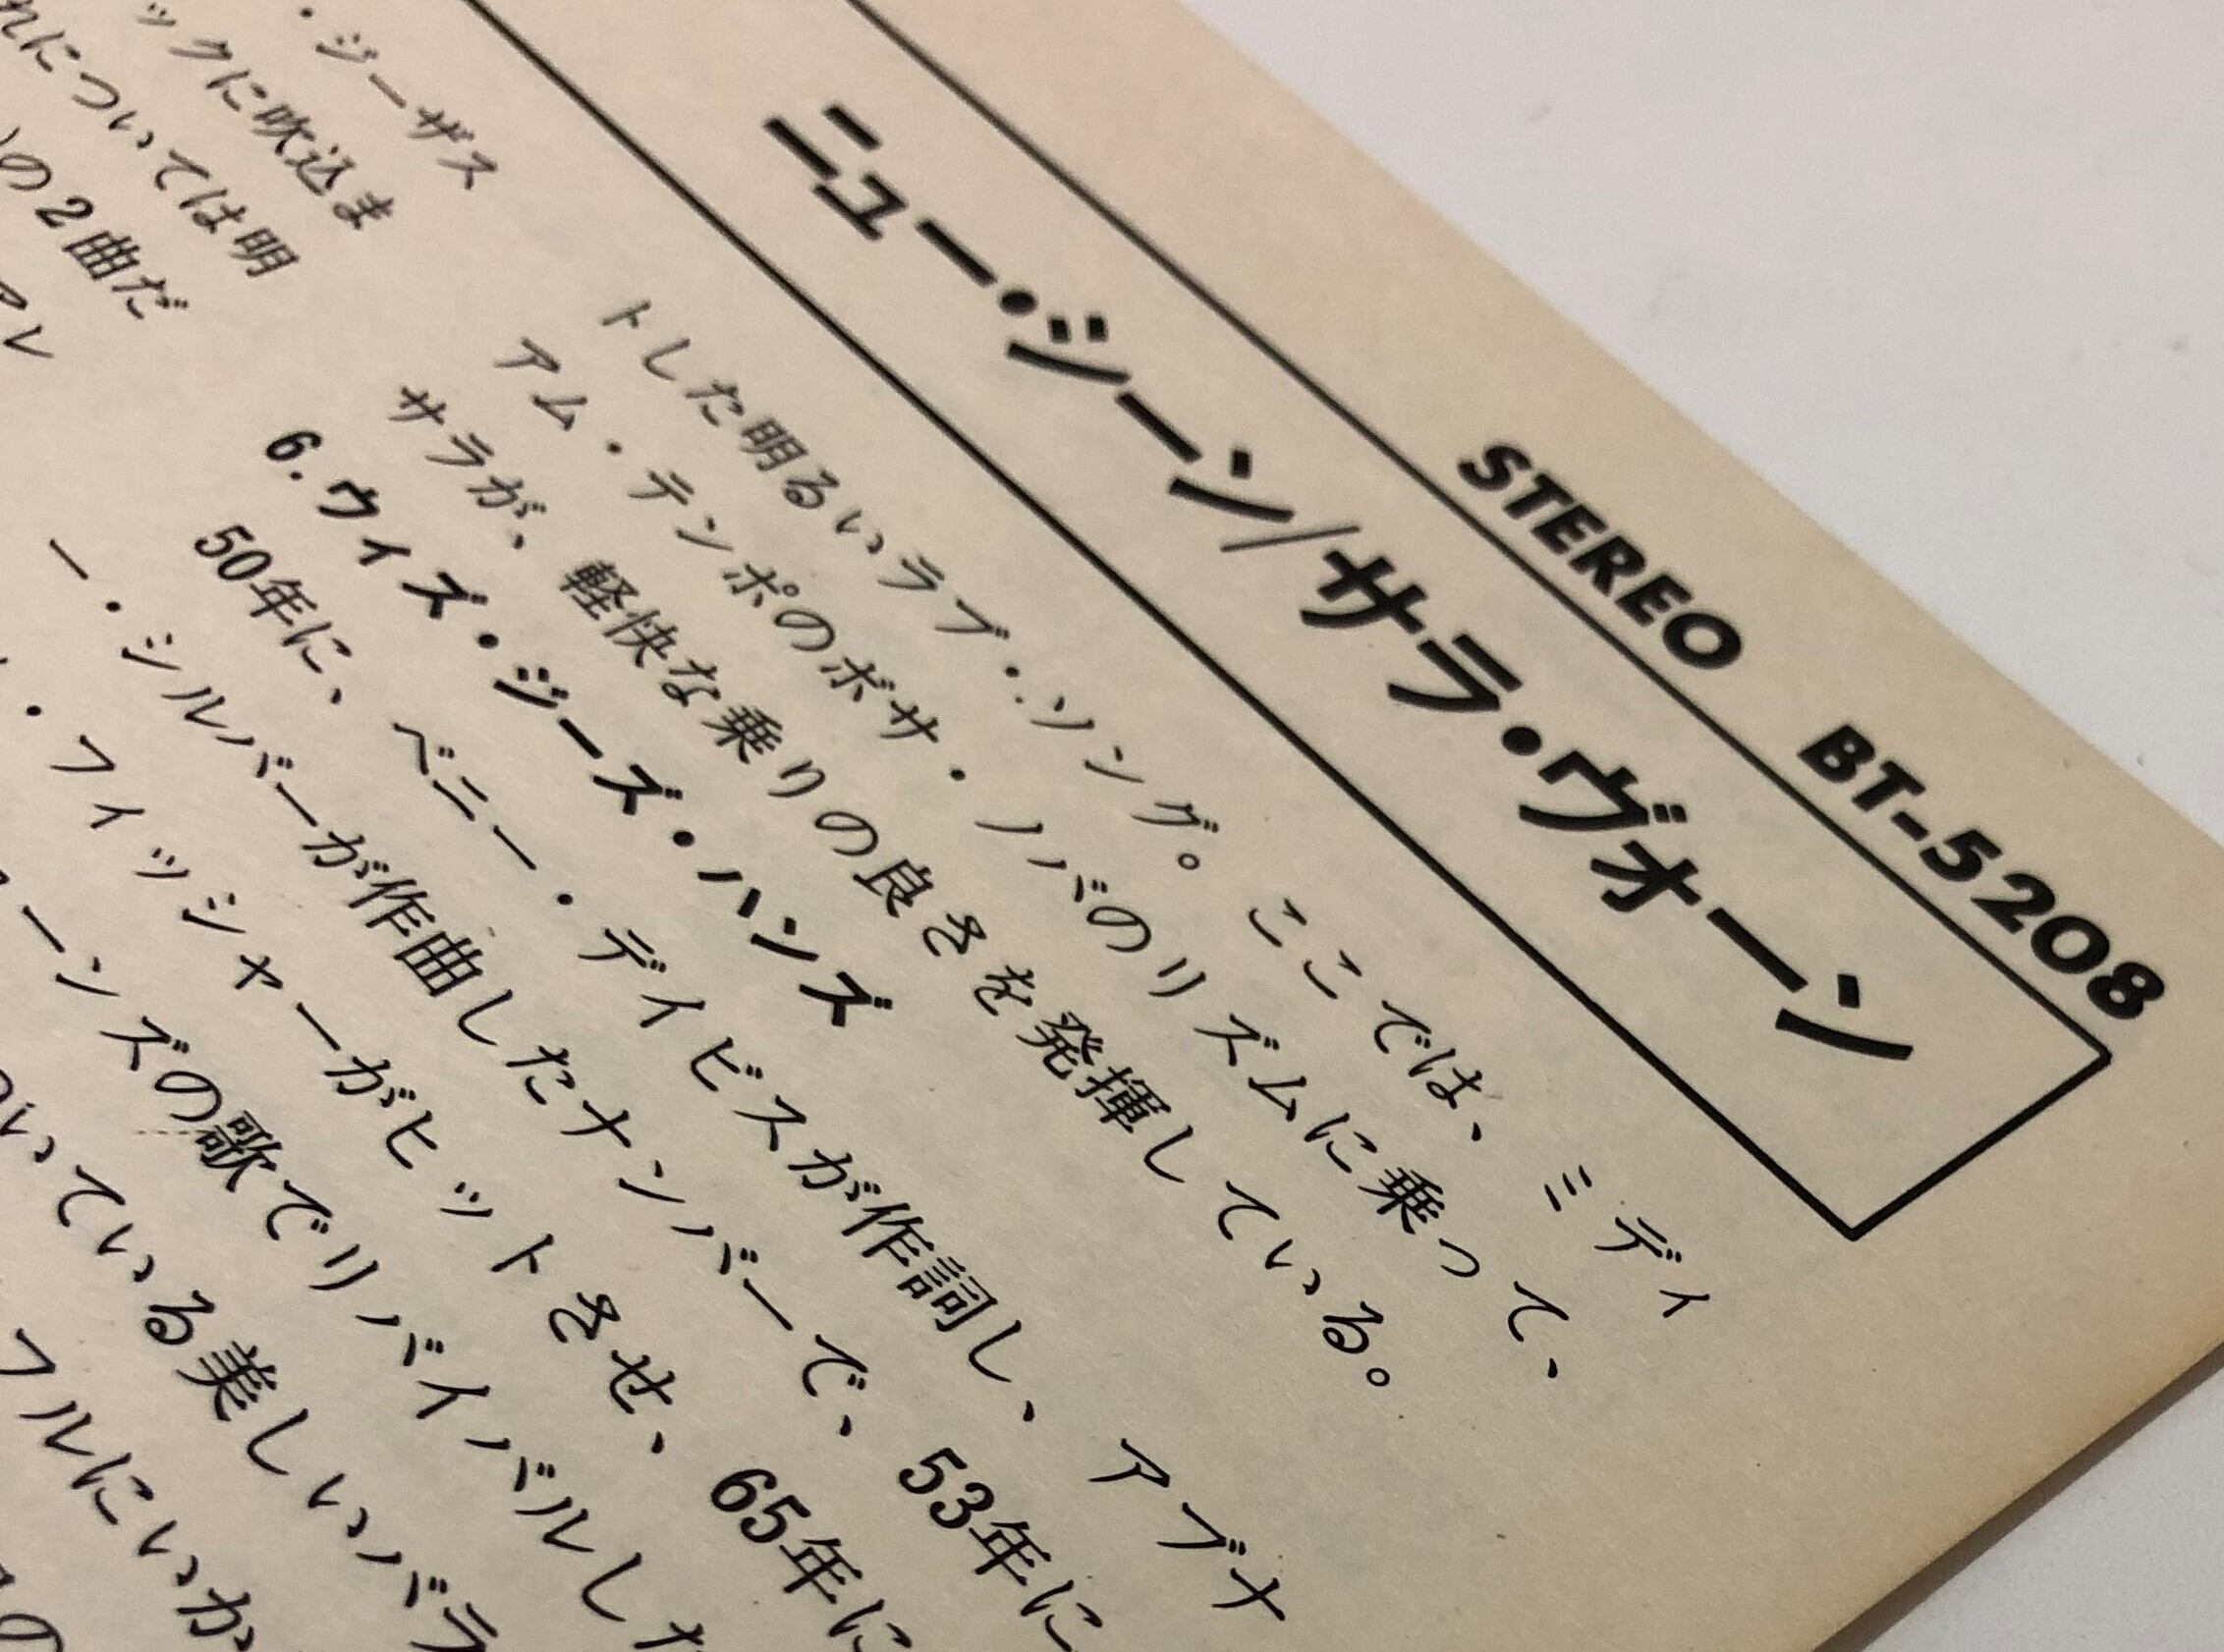 STEREO BT-5208
ニュー・シーン/サラ・ヴォーン
・ジーザス
ックに吹込ま
れについては明
の2曲だ
アレ
トした明るいラブ・ソング。ここでは、ミディ
アム・テンポのボサ・ノバのリズムに乗って、
サラが、軽快な乗りの良さを発揮している。
6.ウィズ・ジーズ・ハンズ
50年に、ベニー・デイビスが作詞し、アブナ
ー・シルバーが作曲したナンバーで、53年に
・フィッシャーがヒットさせ、65年に
ーンズの歌でリバイバルした
いている美しいバラ
フルにいか
の